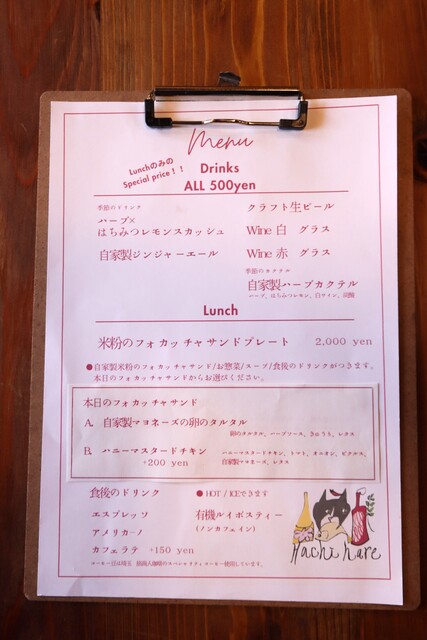 Menu
Lunchのみの
Special price！！
Drinks
ALL 500yen
季節のドリンク
ハーブ×
はちみつレモンスカッシュ
自家製ジンジャーエール
クラフト生ビール
Wine 白 グラス
Wine 赤 グラス
季節のカクテル
自家製ハーブカクテル
ハーブ、はちみつレモン、白ワイン、炭酸
Lunch
米粉のフォカッチャサンドプレート 2,000 yen
●自家製米粉のフォカッチャサンド/お惣菜/スープ/食後のドリンクがつきます。
本日のフォカッチャサンドからお選びください。
本日のフォカッチャサンド
A. 自家製マヨネーズの卵のタルタル
卵のタルタル、ハーブソース、きゅうり、レタス
B. ハニーマスタードチキン
+200 yen
ハニーマスタードチキン、トマト、オニオン、ピクルス、
自家製マヨネーズ、レタス
食後のドリンク
● HOT / ICEできます
エスプレッソ
アメリカーノ
カフェラテ +150 yen
有機ルイボスティー
(ノンカフェイン)
コーヒー豆は埼玉
のスペシャリティコーヒー使用しています。
Hachi hare